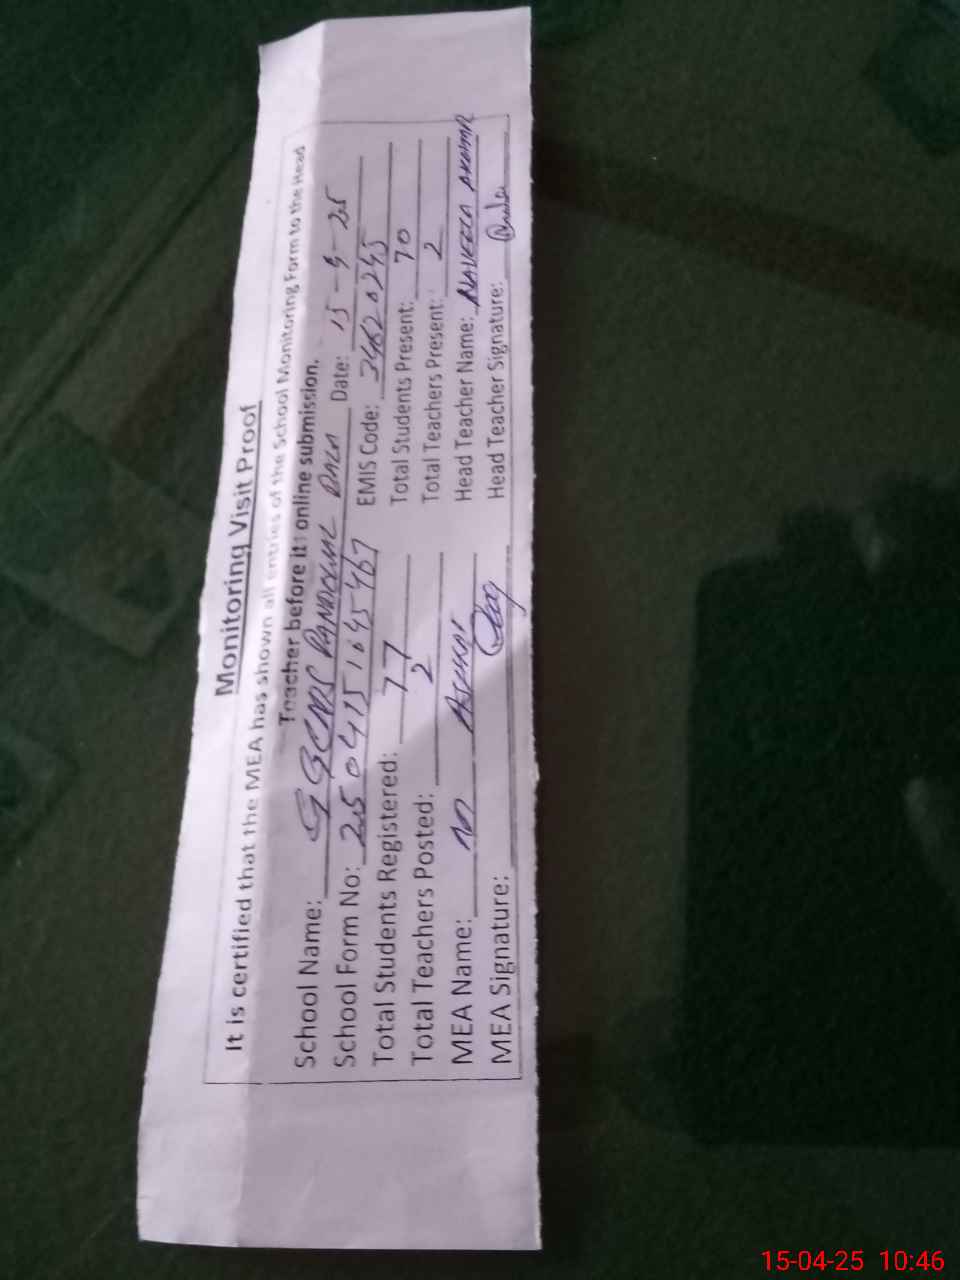 Monitoring Visit Proof
It is certified that the MEA has shown all entries of the School Monitoring Form to the Head
Teacher before it online submission.
School Name: GGCMS Date: 15-4-25
School Form No: EMIS Code:
Total Students Registered: 77 Total Students Present: 70
Total Teachers Posted: 2 Total Teachers Present: 2
MEA Name: Head Teacher Name:
MEA Signature: Head Teacher Signature:
15-04-25 10:46